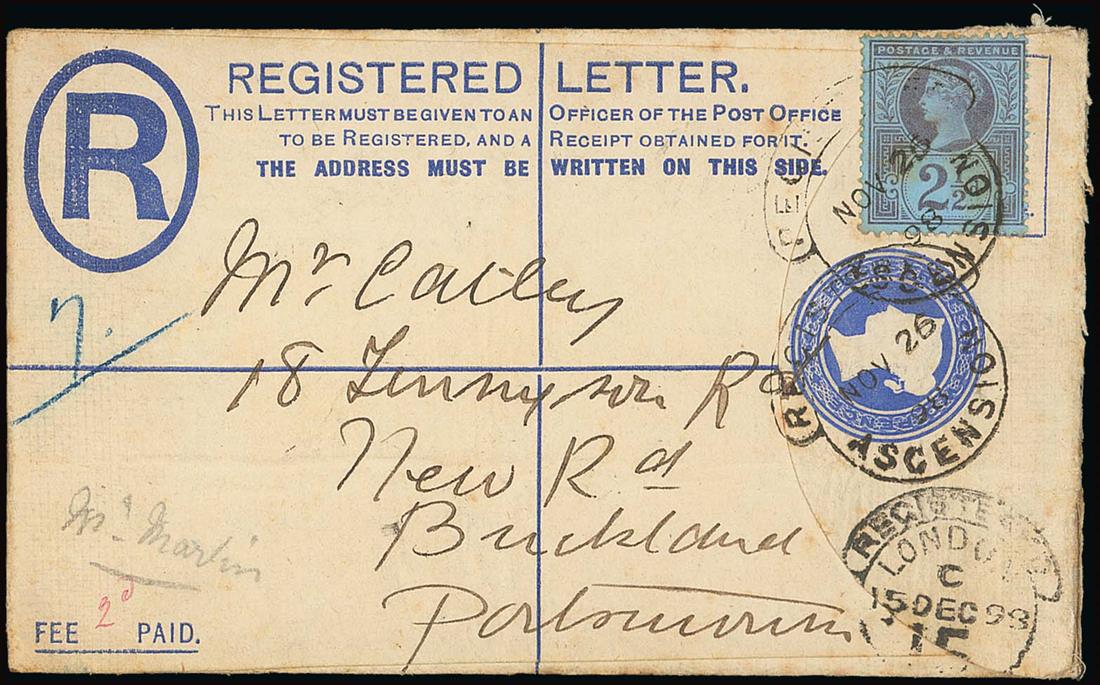 REGISTERED LETTER.
THIS LETTER MUST BE GIVEN TO AN OFFICER OF THE POST OFFICE
TO BE REGISTERED, AND A RECEIPT OBTAINED FOR IT.
THE ADDRESS MUST BE WRITTEN ON THIS SIDE.
R
POSTAGE & REVENUE
2½
NOV 25
98
ASCENSION
Mr
18 Tennyson Rd
New Rd
Buckland
Portsmouth
NOV 26
98
ASCENSION
REGISTERED
LONDON
C
15 DEC 98
Mr. Martin
2d
FEE PAID.